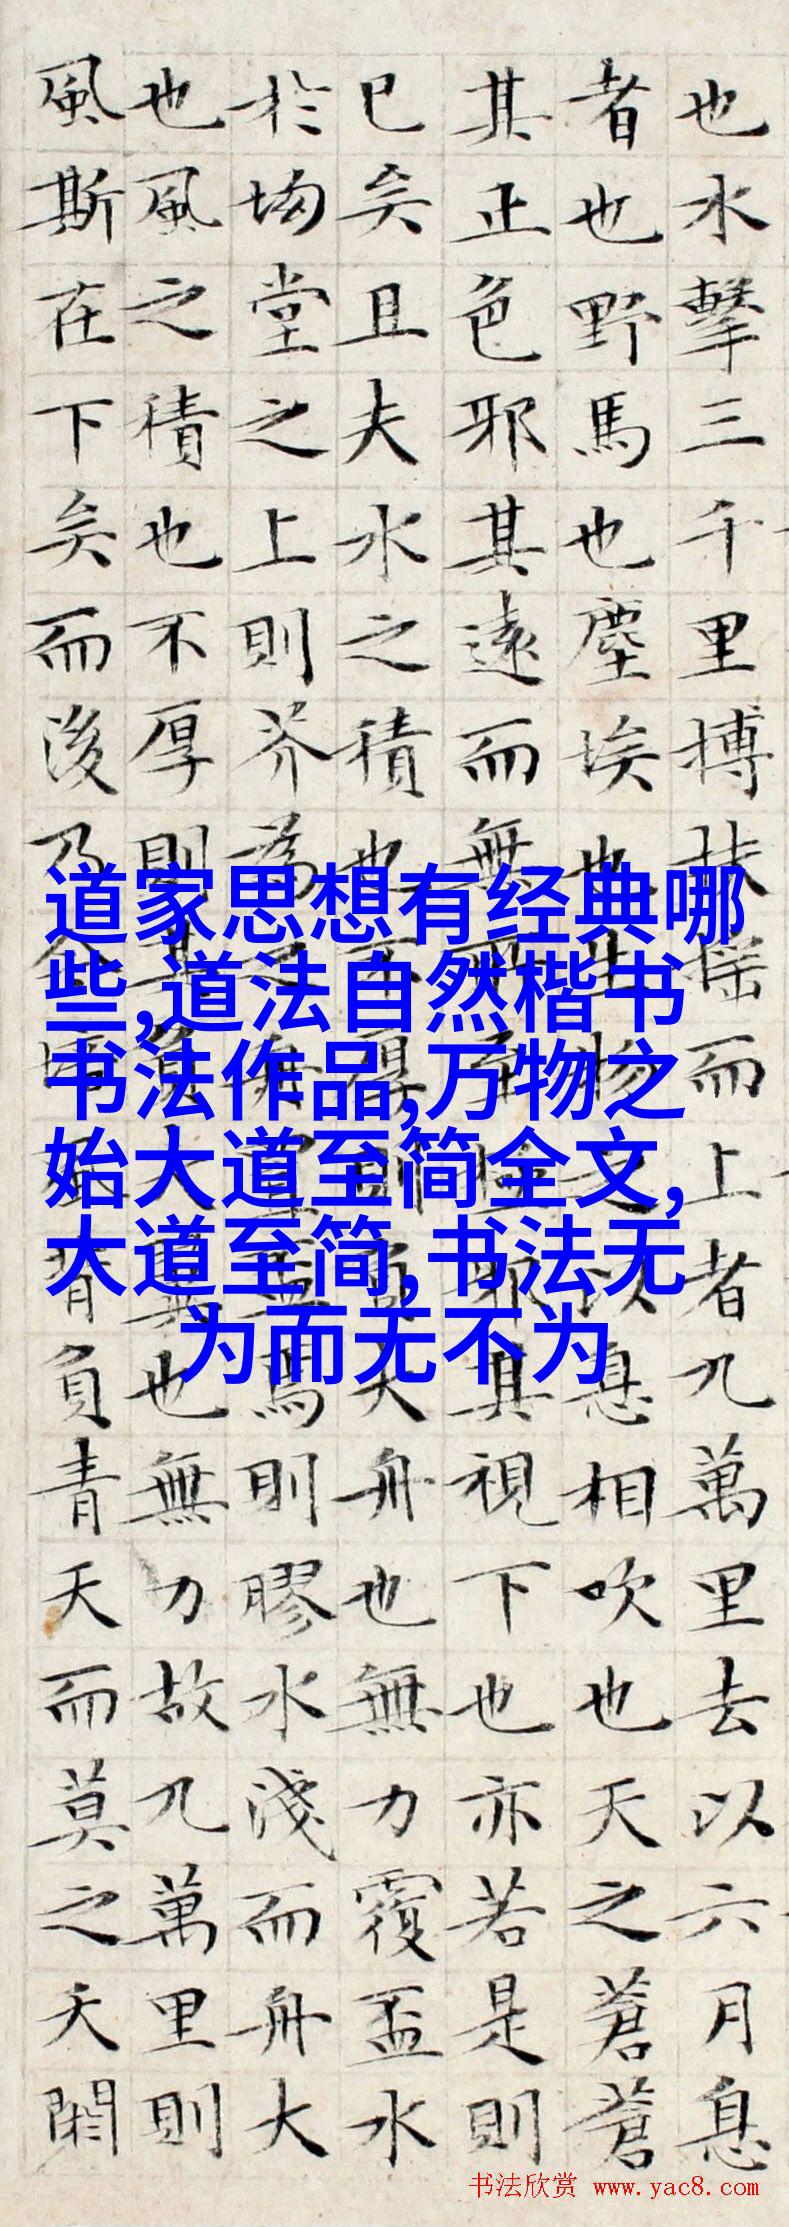 也水擊三千里搏扶搖而上者九萬里去以六月息
者也野馬也塵埃也生物之以息相吹也天之蒼蒼
其正色邪其遠而無所至極邪其視下也亦若是則
已矣且夫水之積也不厚則負大舟也無力覆盃水
於坳堂之上則芥為之舟置盃焉則膠水淺而舟大
也風之積也不厚則其負大翼也無力故九萬里則
風斯在下矣而後乃今培風背負青天而莫之夭閼
道家思想有经典哪
些,道法自然楷书
书法作品,万物之
始大道至简全文,
大道至简,书法无
为而无不为
书法欣赏 www.yac8.com